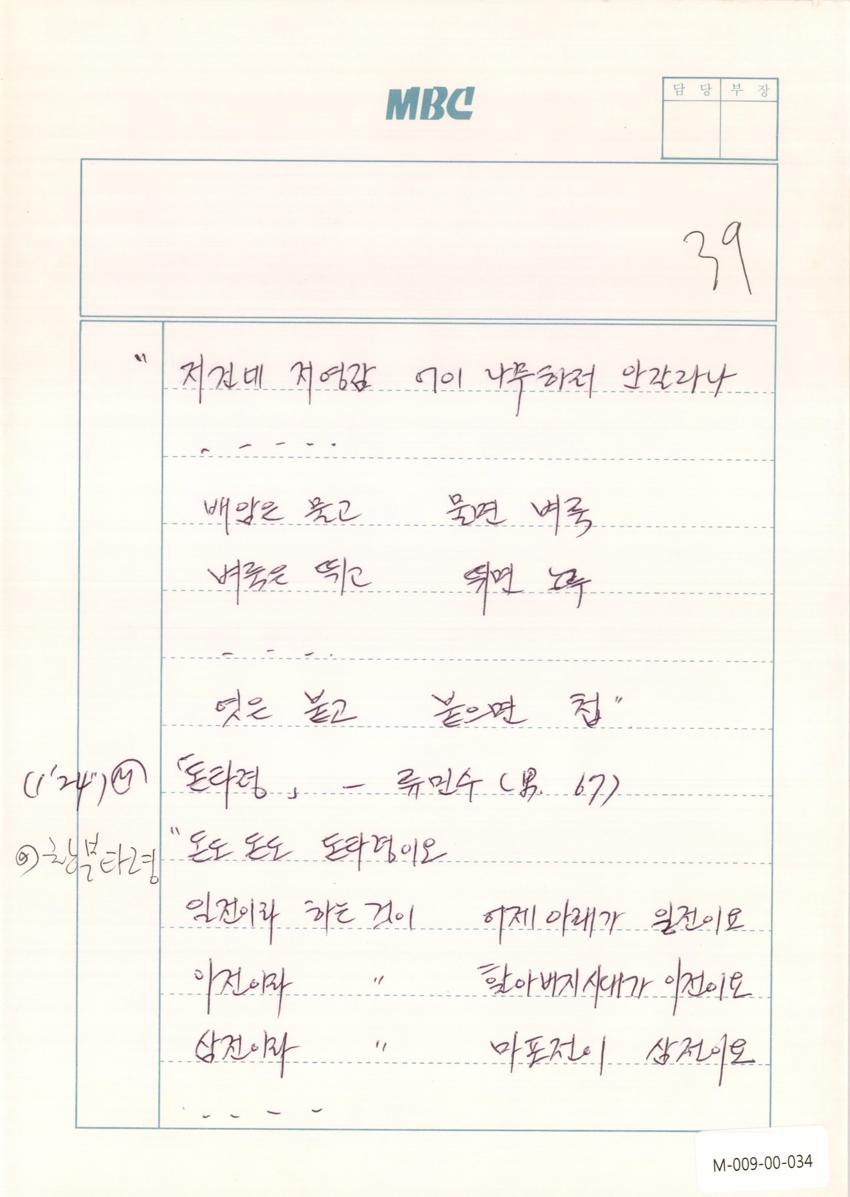 MBC
담 당 부 장
39
" 저건네 저영감 어이 나무하러 안갈라나
. - - - - .
배암은 물고 물면 벼룩
벼룩은 뛰고 뛰면 노루
- - - .
엿은 붙고 붙으면 첩"
(1'24") 「돈타령」 - 류민수 (男. 67)
창부타령 "돈도 돈도 돈타령이요
일전이라 하는 것이 어제 아래가 일전이요
이전이라 " 할아버지시대가 이전이요
삼전이라 " 마포전이 삼전이요
. - - - -
M-009-00-034